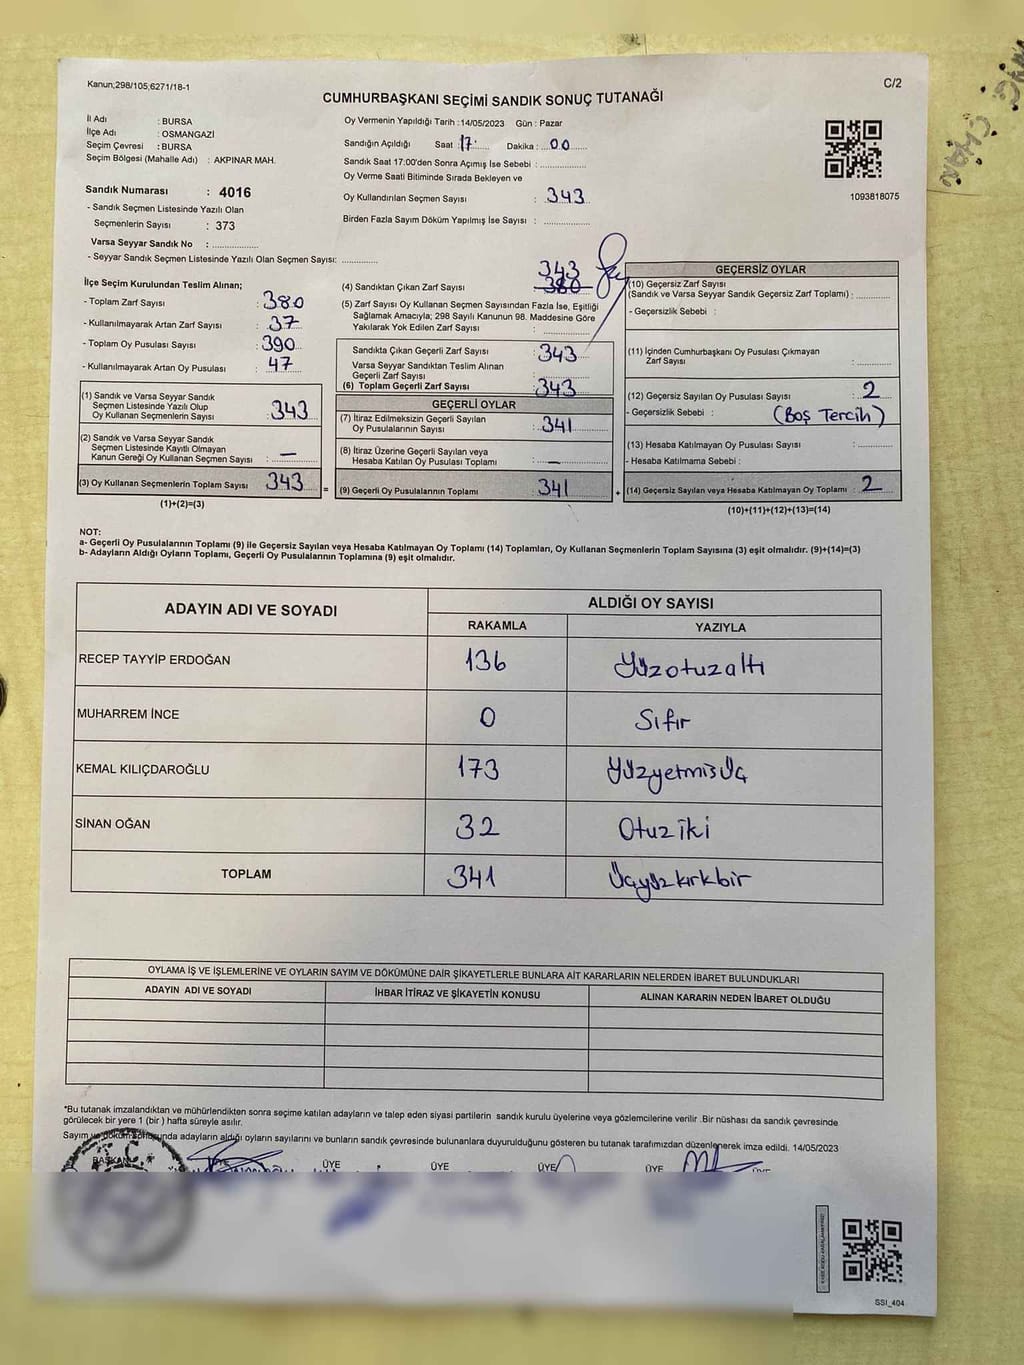 Kanun;298/105;6271/18-1
C/2
CUMHURBAŞKANI SEÇİMİ SANDIK SONUÇ TUTANAĞI
İl Adı : BURSA
İlçe Adı : OSMANGAZİ
Seçim Çevresi : BURSA
Seçim Bölgesi (Mahalle Adı) : AKPINAR MAH.
Sandık Numarası : 4016
- Sandık Seçmen Listesinde Yazılı Olan
Seçmenlerin Sayısı : 373
Varsa Seyyar Sandık No : ................
- Seyyar Sandık Seçmen Listesinde Yazılı Olan Seçmen Sayısı: ............
Oy Vermenin Yapıldığı Tarih :14/05/2023 Gün : Pazar
Sandığın Açıldığı Saat : 17: Dakika : 00
Sandık Saat 17:00'den Sonra Açımış İse Sebebi : ................
Oy Verme Saati Bitiminde Sırada Bekleyen ve
Oy Kullandırılan Seçmen Sayısı : 343
Birden Fazla Sayım Döküm Yapılmış İse Sayısı : ................
1093818075
İlçe Seçim Kurulundan Teslim Alınan;
- Toplam Zarf Sayısı : 380
- Kullanılmayarak Artan Zarf Sayısı : 37
- Toplam Oy Pusulası Sayısı : 390
- Kullanılmayarak Artan Oy Pusulası : 47
(1) Sandık ve Varsa Seyyar Sandık
Seçmen Listesinde Yazılı Olup
Oy Kullanan Seçmenlerin Sayısı : 343
(2) Sandık ve Varsa Seyyar Sandık
Seçmen Listesinde Kayıtlı Olmayan
Kanun Gereği Oy Kullanan Seçmen Sayısı : —
(3) Oy Kullanan Seçmenlerin Toplam Sayısı 343 =
(1)+(2)=(3)
343
(4) Sandıktan Çıkan Zarf Sayısı : 380
(5) Zarf Sayısı Oy Kullanan Seçmen Sayısından Fazla İse, Eşitliği
Sağlamak Amacıyla; 298 Sayılı Kanunun 98. Maddesine Göre
Yakılarak Yok Edilen Zarf Sayısı : ................
Sandıkta Çıkan Geçerli Zarf Sayısı : 343
Varsa Seyyar Sandıktan Teslim Alınan
Geçerli Zarf Sayısı
(6) Toplam Geçerli Zarf Sayısı : 343
GEÇERLİ OYLAR
(7) İtiraz Edilmeksizin Geçerli Sayılan
Oy Pusulalarının Sayısı : 341
(8) İtiraz Üzerine Geçerli Sayılan veya
Hesaba Katılan Oy Pusulası Toplamı : —
(9) Geçerli Oy Pusulalarının Toplamı : 341 +
GEÇERSİZ OYLAR
(10) Geçersiz Zarf Sayısı
(Sandık ve Varsa Seyyar Sandık Geçersiz Zarf Toplamı) : ............
- Geçersizlik Sebebi :
(11) İçinden Cumhurbaşkanı Oy Pusulası Çıkmayan
Zarf Sayısı : ............
(12) Geçersiz Sayılan Oy Pusulası Sayısı : 2
- Geçersizlik Sebebi : (Boş Tercih)
(13) Hesaba Katılmayan Oy Pusulası Sayısı : ............
- Hesaba Katılmama Sebebi :
(14) Geçersiz Sayılan veya Hesaba Katılmayan Oy Toplamı : 2
(10)+(11)+(12)+(13)=(14)
NOT:
a- Geçerli Oy Pusulalarının Toplamı (9) ile Geçersiz Sayılan veya Hesaba Katılmayan Oy Toplamı (14) Toplamları, Oy Kullanan Seçmenlerin Toplam Sayısına (3) eşit olmalıdır. (9)+(14)=(3)
b- Adayların Aldığı Oyların Toplamı, Geçerli Oy Pusulalarının Toplamına (9) eşit olmalıdır.
ADAYIN ADI VE SOYADI ALDIĞI OY SAYISI
RAKAMLA YAZIYLA
RECEP TAYYİP ERDOĞAN 136 Yüzotuzaltı
MUHARREM İNCE 0 Sıfır
KEMAL KILIÇDAROĞLU 173 Yüzyetmisüç
SİNAN OĞAN 32 Otuziki
TOPLAM 341 Üçyüzkırkbir
OYLAMA İŞ VE İŞLEMLERİNE VE OYLARIN SAYIM VE DÖKÜMÜNE DAİR ŞİKAYETLERLE BUNLARA AİT KARARLARIN NELERDEN İBARET BULUNDUKLARI
ADAYIN ADI VE SOYADI İHBAR İTİRAZ VE ŞİKAYETİN KONUSU ALINAN KARARIN NEDEN İBARET OLDUĞU
*Bu tutanak imzalandıktan ve mühürlendikten sonra seçime katılan adayların ve talep eden siyasi partilerin sandık kurulu üyelerine veya gözlemcilerine verilir .Bir nüshası da sandık çevresinde
görülecek bir yere 1 (bir ) hafta süreyle asılır.
Sayım ve döküm sonucunda adayların aldığı oyların sayılarını ve bunların sandık çevresinde bulunanlara duyurulduğunu gösteren bu tutanak tarafımızdan düzenlenerek imza edildi. 14/05/2023
BAŞKAN ÜYE ÜYE ÜYE ÜYE ÜYE
T.C.
SSİ_404